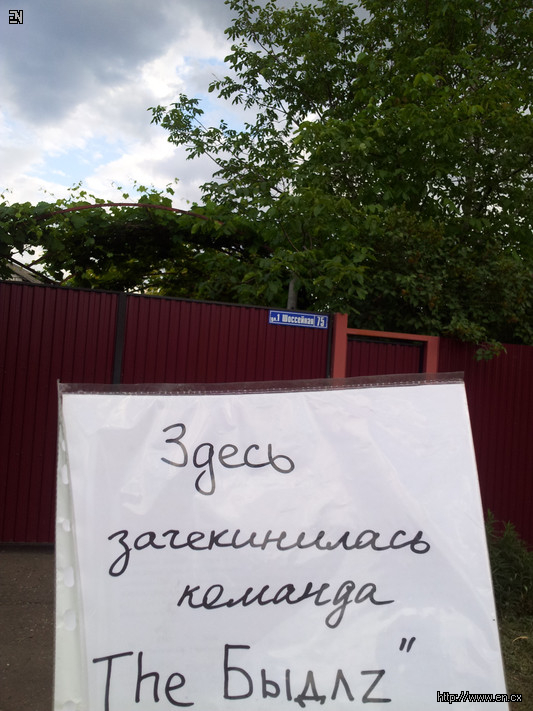 EN
ул.1 Шоссейная 75
Здесь
зачекинилась
команда
The Быдлz"
http://www.en.cx